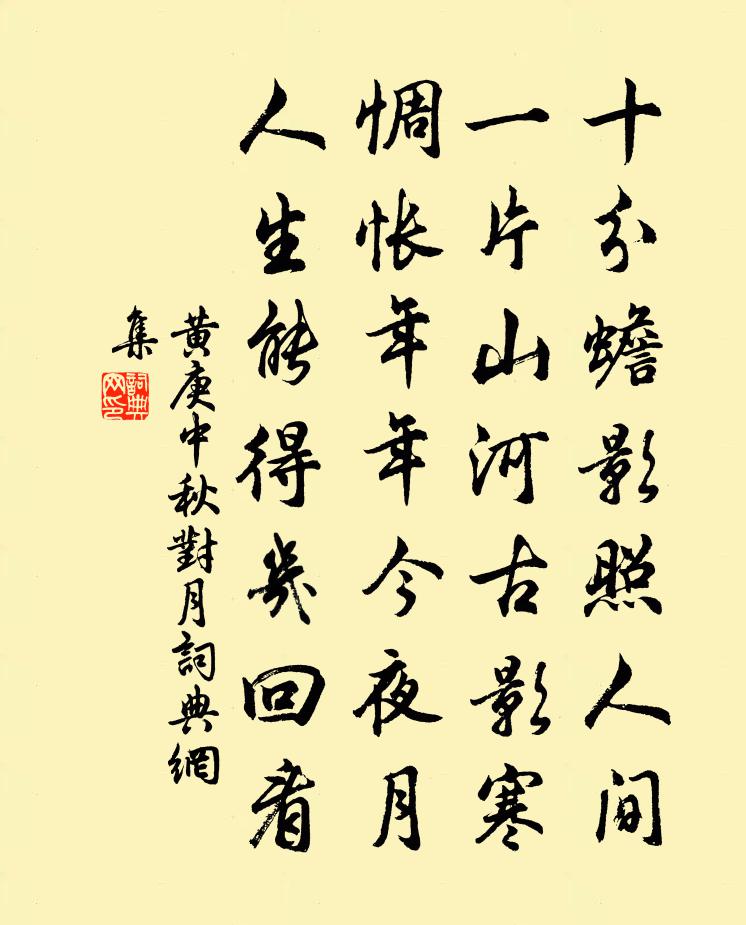 十分蟾影照人间
一片山河古影寒
惆怅年年今夜月
人生能得幾回看
黄庚中秋對月詞典網
集
詞典
网印